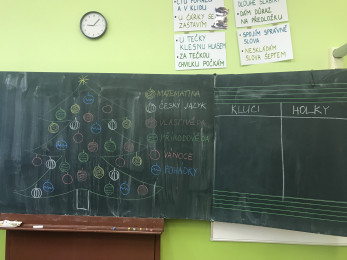 ČTU POMALU
A V KLIDU
U ČÁRKY SE
ZASTAVÍM
U TEČKY
KLESNU HLASEM
ZA TEČKOU
CHVILKU POČKÁM
DLOUHÉ SLABIKY
DÁM DŮRAZ
NA PŘEDLOŽKU
SPOJÍM SPRÁVNĚ
SLOVA
NESKLÁDÁM
SLOVA ŠEPTEM
MATEMATIKA
ČESKÝ JAZYK
VLASTIVĚDA
PŘÍRODOVĚDA
VÁNOCE
POHÁDKY
KLUCI
HOLKY